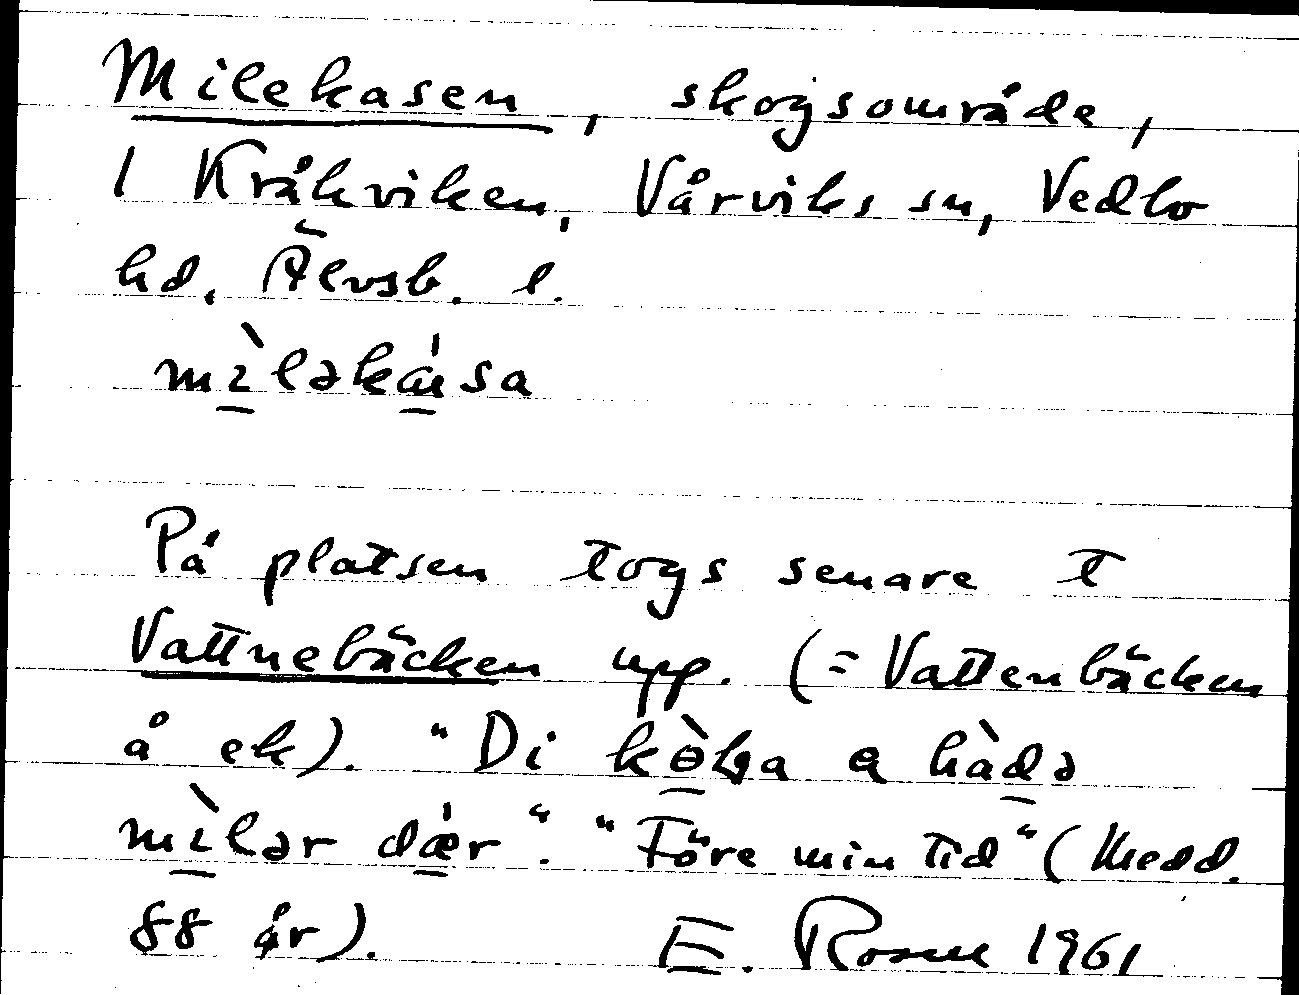 Milekasen, skogsområde,
I Kråkviken, Vårviks sn, Vedbo
hd, Älvsb. l.
mìləkása
På platsen togs senare t
Vattnebäcken upp. (= Vattenbäcken
å ek). "Di kòɫa a hàdə
mìlər dǽr". "Före min tid" (Medd.
88 år). E. Rosell 1961